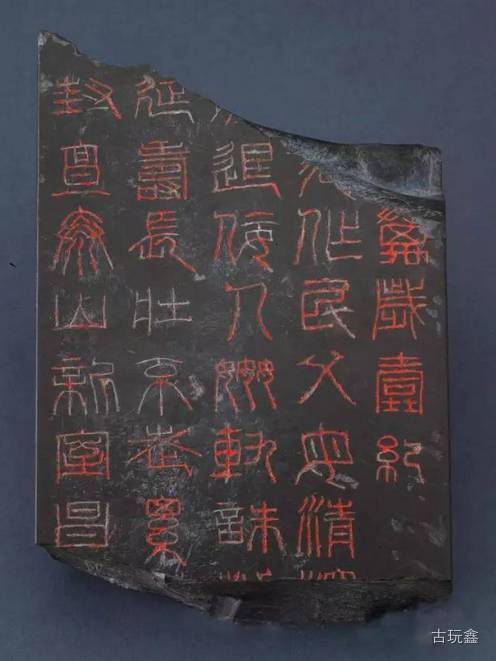 萬歲壹紀
作民父母清
退佞人姦軌誅
延壽長壯不老累
封亶泰山新室昌
古玩鑫